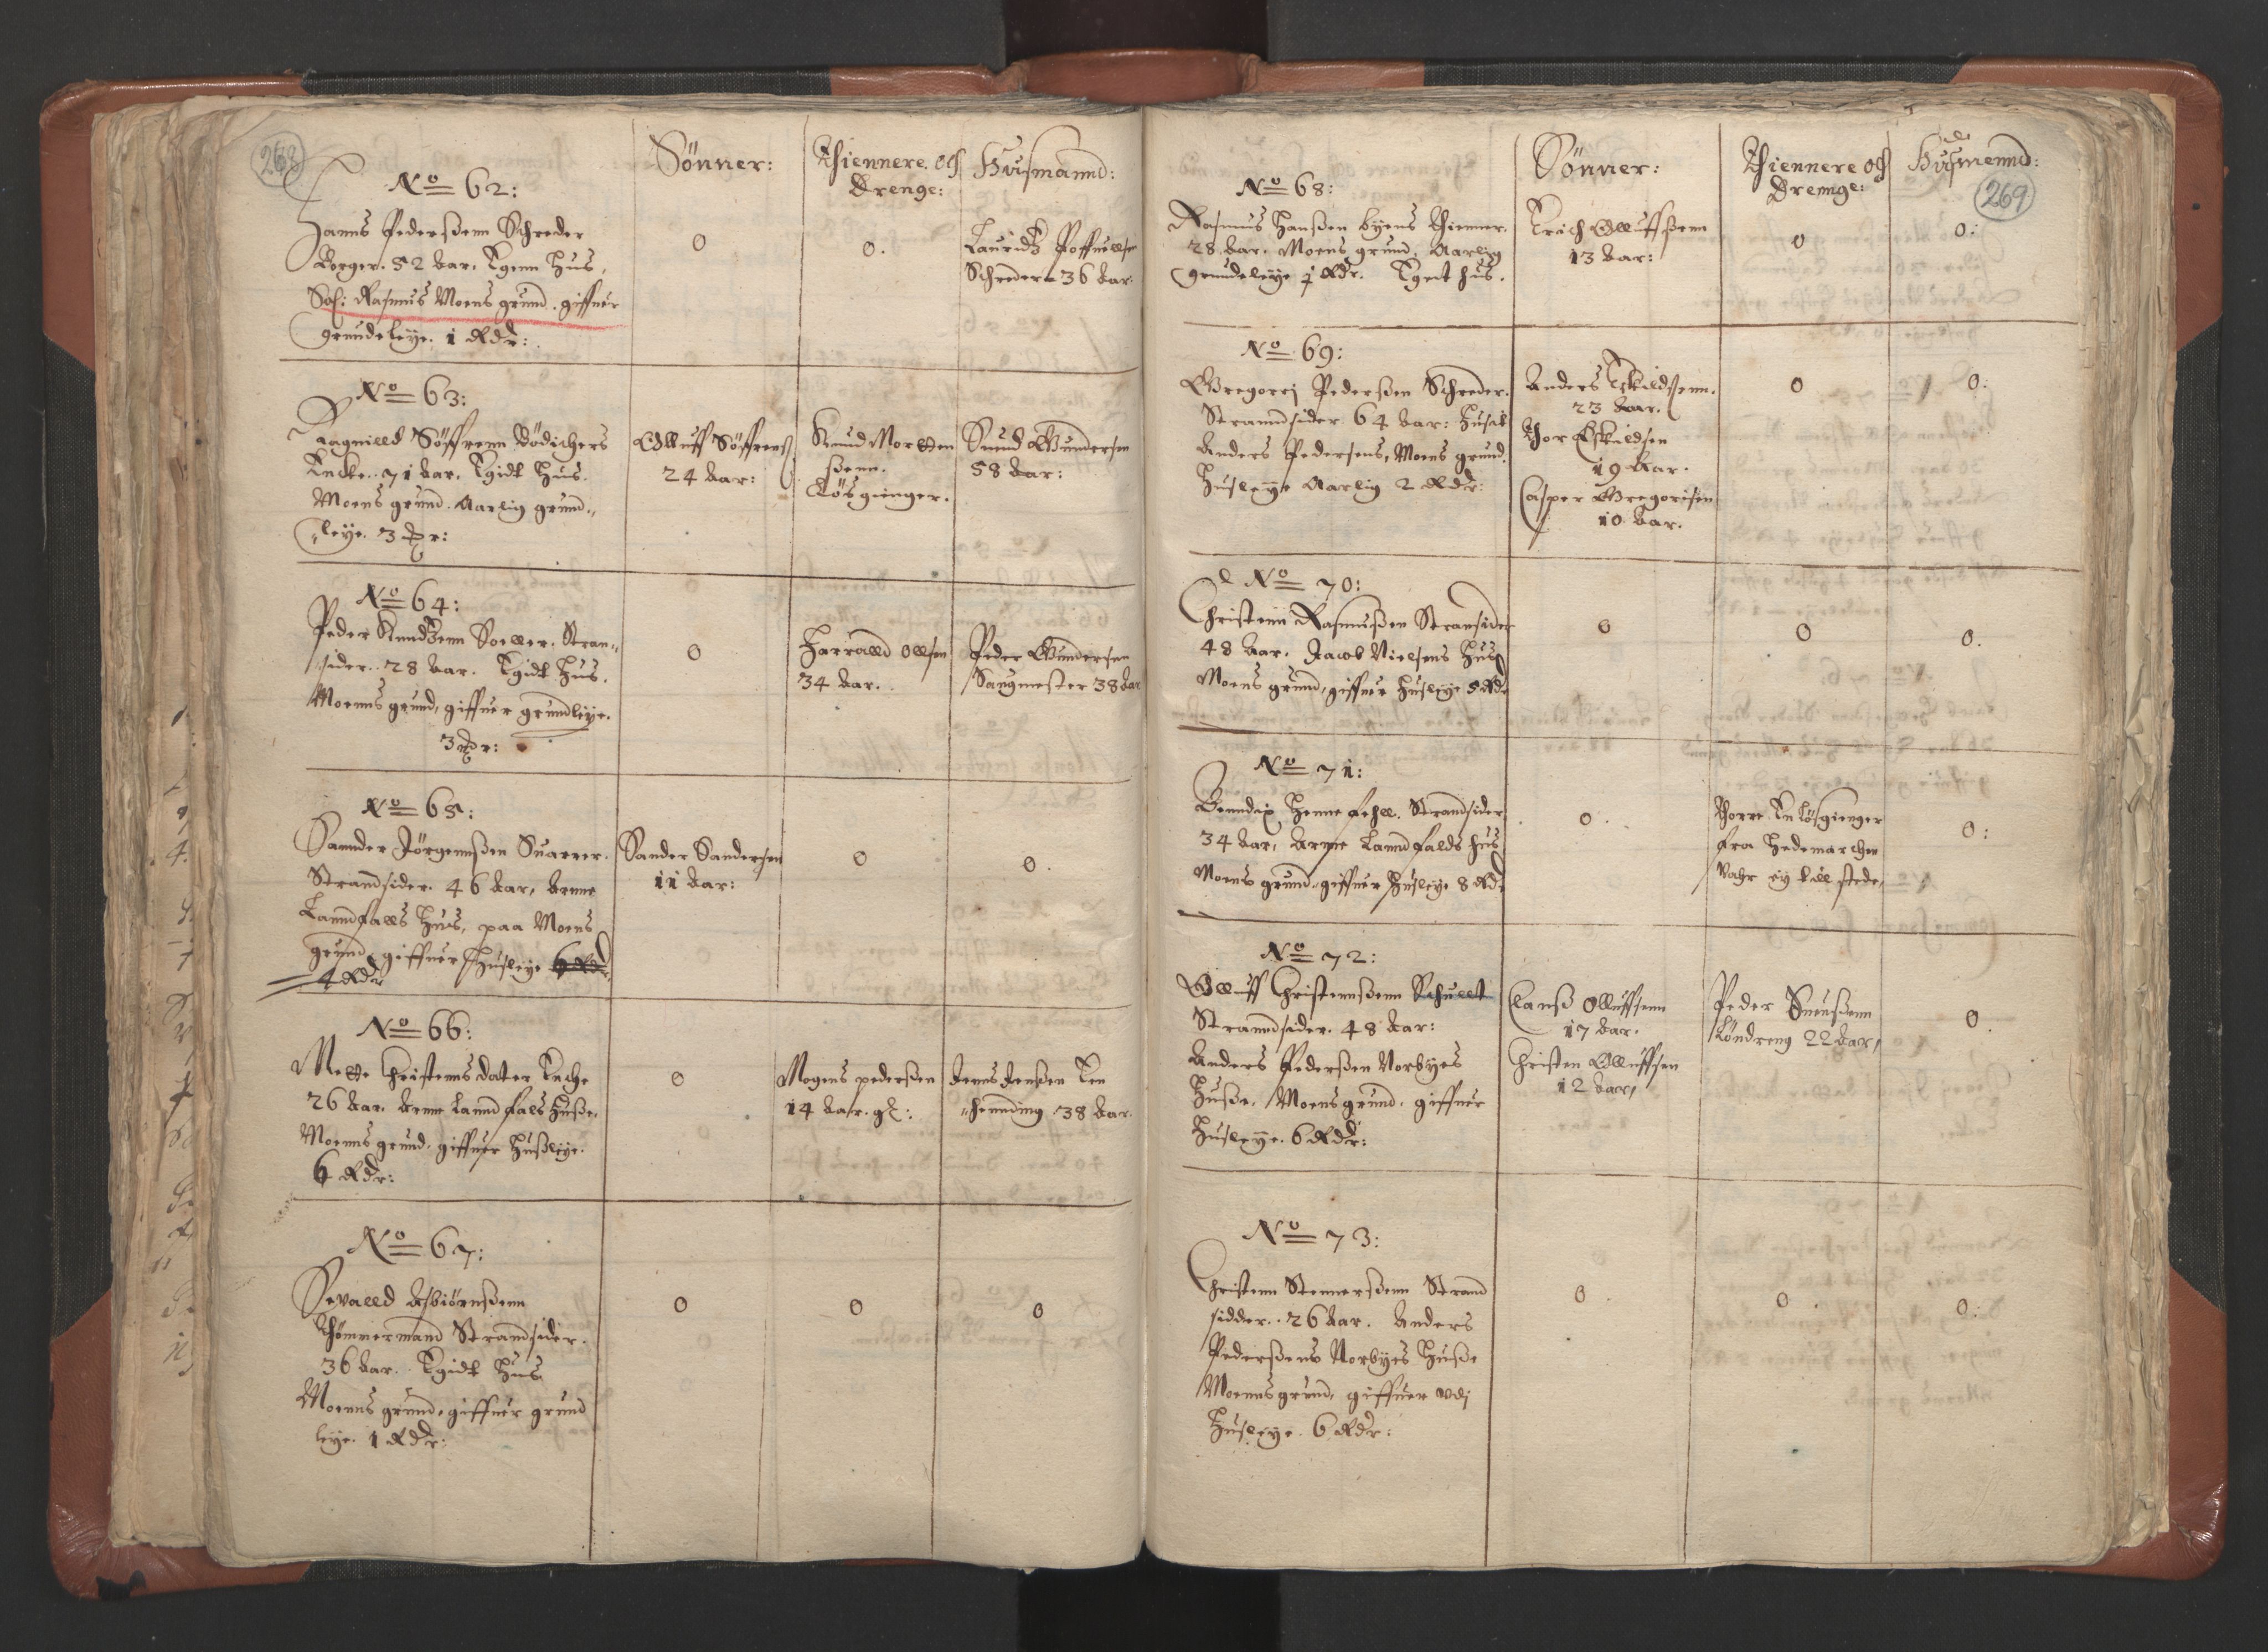 268
No 62:
Sönner:
Thiennere og
Drenge:
Huusmannd:
Hanns Pederßenn Schreder
Borger. 52 Aar. Egenn Huus,
Sal: Rasmus Moens grund. giffuer
grundeleye. 1 Rdr:
0
0.
Lauridz Poffuellsen
Schreder 36 Aar.
No 63:
Ragnilld Söffrenn Bödichers
Encke. 71 Aar. Egidt Huus.
Moens grund. Aarlig grund„
„leye. 3 Rdr:
Olluff Söffrens
24 Aar:
Knud Mortten
ßenn.
Lösgienger.
Suend Gundersen
58 Aar:
No 64:
Peder Knudzenn Soeller. Stran„
sider. 28 Aar. Egidt Huus.
Moenns grund, giffuer grundleye.
3 Rdr:
0
Harralld Ollsen
34 Aar.
Peder Gundersen
Saugmester 38 Aar
No 65:
Sannder Jörgennßen Suarrer.
Strandsider. 46 Aar, Arnne
Lanndfalls Huus, paa Moens
grund, giffuer Huusleye 6 Rdr
4 Rdr
Sander Sandersen
11 Aar:
0
0.
No 66:
Mette Christensdater Enche
26 Aar. Arnne Lannd fals Huuße.
Moenns grund. giffuer Huußleye.
6 Rdr:
0
Mogens pederßen
14 Aar. gl:
Jenns Jenßen Ken
„hennding 38 Aar.
No 67:
Sevalld Asbiörnßenn
Thömmermand Strandsider.
36 Aar. Egidt Huus
Moenns grund, giffuer grund
leye. 1 Rdr:
0
0
0
269
No 68:
Sönner:
Thiennere og
Drennge:
Huusmennd:
Rasmus Hanßen byens thienner.
28 Aar. Moens grund, Aarlig
grundeleye j Rdr. Egnt huus.
Erich Olluffßenn
13 Aar:
0
0:
No 69:
Gregorij Pederßen Schreder.
Stranndsider 64 Aar:
Anders Pedersens, Moens grund.
Huusleye Aarlig 2 Rdr:
Anders Eskildsenn.
23 Aar.
Thor Eskildsen
19 Aar.
Casper Gregorisen
10 Aar.
0
0:
No 70:
Christenn Rasmußen Stransider
48 Aar. Jacob Nielsens Huus
Moens grund, giffuer Huusleye 5 Rdr
0
0
0.
No 71:
Benndix Henne Strandsider
34 Aar, Arnne Lanndfalds huus
Moens grund, giffuer Huusleye 8 Rdr
0.
Thorre En lösgienger
fra Hedemarchen
Vahr ey till stede,
0:
No 72:
Olluff Christennßenn Schullt
Stranndsider. 48 Aar:
Anders Pederßen Norbyes
Huuße. Moens grund. giffuer
Huusleye. 6 Rdr:
Clanß Olluffsenn
17 Aar.
Christen Olluffsen
12 Aar,
Peder Suenßenn
Löndreng 22 Aar,
0.
No 73:
Christenn Stennerßenn Strand
sidder. 26 Aar. Anders
Pederßens Norbyes Huuße
Moenns grund, giffuer vdj
Huusleye. 6 Rdr:
0
0
0: